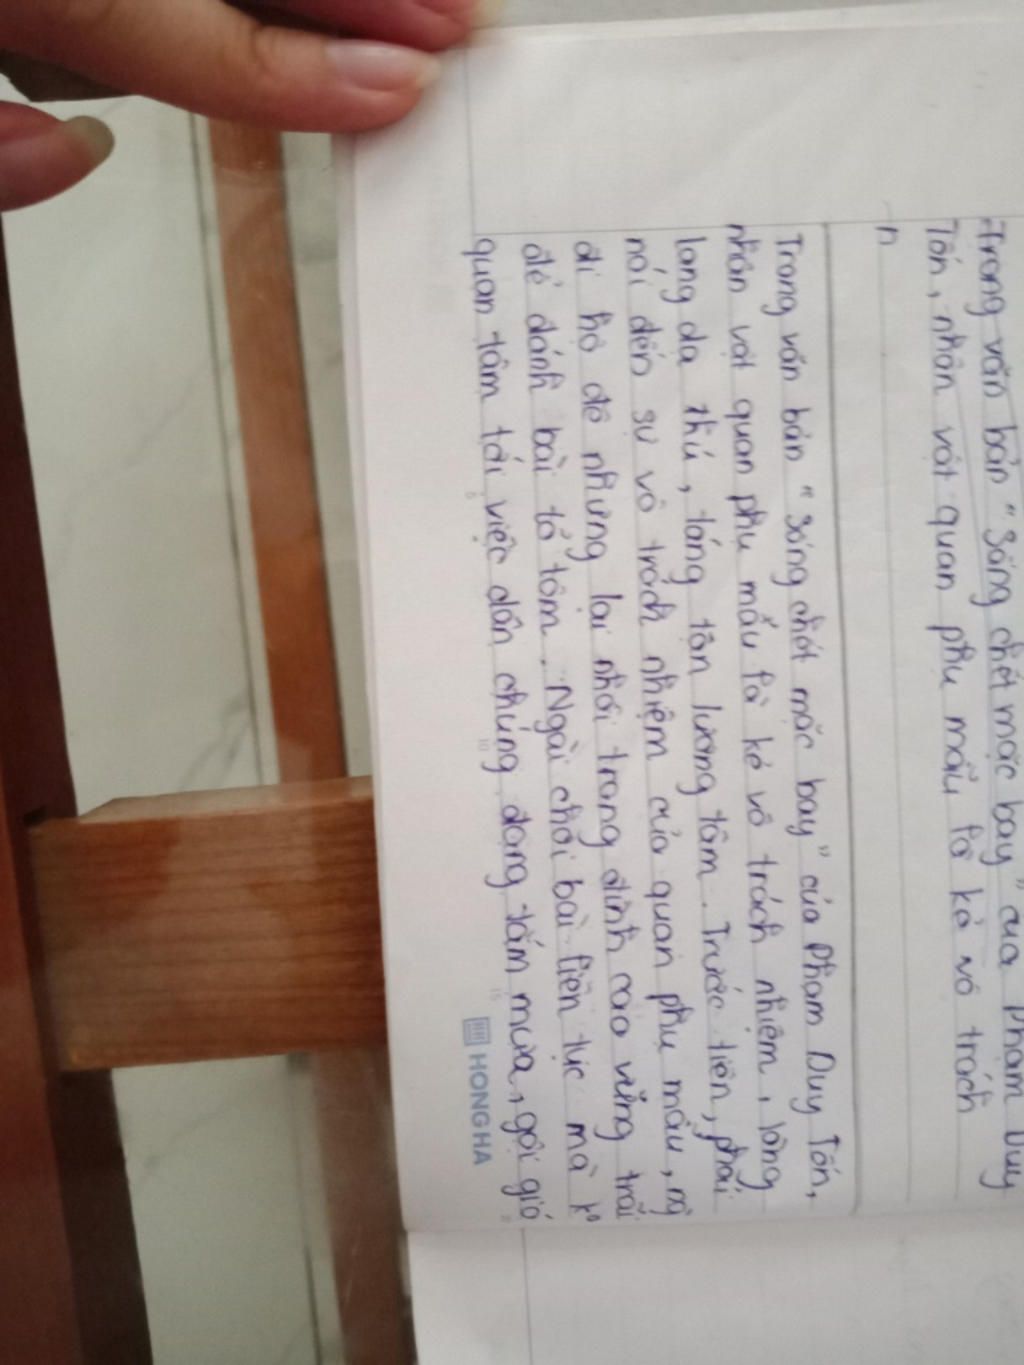 Trong văn bản "Sống chết mặc bay" của Phạm Duy
Tốn, nhân vật quan phụ mẫu là kẻ vô trách
n
Trong văn bản "Sống chết mặc bay" của Phạm Duy Tốn,
nhân vật quan phụ mẫu là kẻ vô trách nhiệm, lòng
lang dạ thú, táng tận lương tâm. Trước tiên, phải
nói đến sự vô trách nhiệm của quan phụ mẫu,
đi hộ đê nhưng lại nhởi trong đình cao vững trãi
để đánh bài tổ tôm. Ngài chơi bài liên tục mà ko
quan tâm tới việc dân chúng đang tắm mưa, gội gió
HONG HA